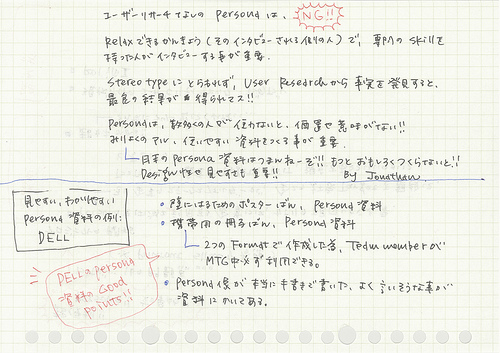 ユーザーリサーチなしの Personaは、 NG!!
Relaxできるかんきょう(そのインタビューされる側の人)で、専門の Skillを
持った人がインタビューする事が重要.
Stereo typeにとらわれず、User Researchから事実を発見すると、
最色の結果が得られてス!!
Personaは、数多くの人が使わないと、価置や意味がない!!
みりょくのアル、使いやすい資料をつくる事が重要.
日本のPersona資料はつまんねーぞ!! もっとおもしろくつくらないと!!
Design性や見せ方も重要!! By Jonathan.
見やすい、わかりやすい
Persona資料の例:
DELL
・壁にはるためのポスターばん、Persona資料
・携帯用の冊子ばん、Persona資料
2つのFormatで作成した為、Team memberが
MTG中必ず利用できる。
DELLのpersona
資料のGood
points!!
・Persona像が本当に手書きで書いた、よく言いそうな事が
資料にかいてある。